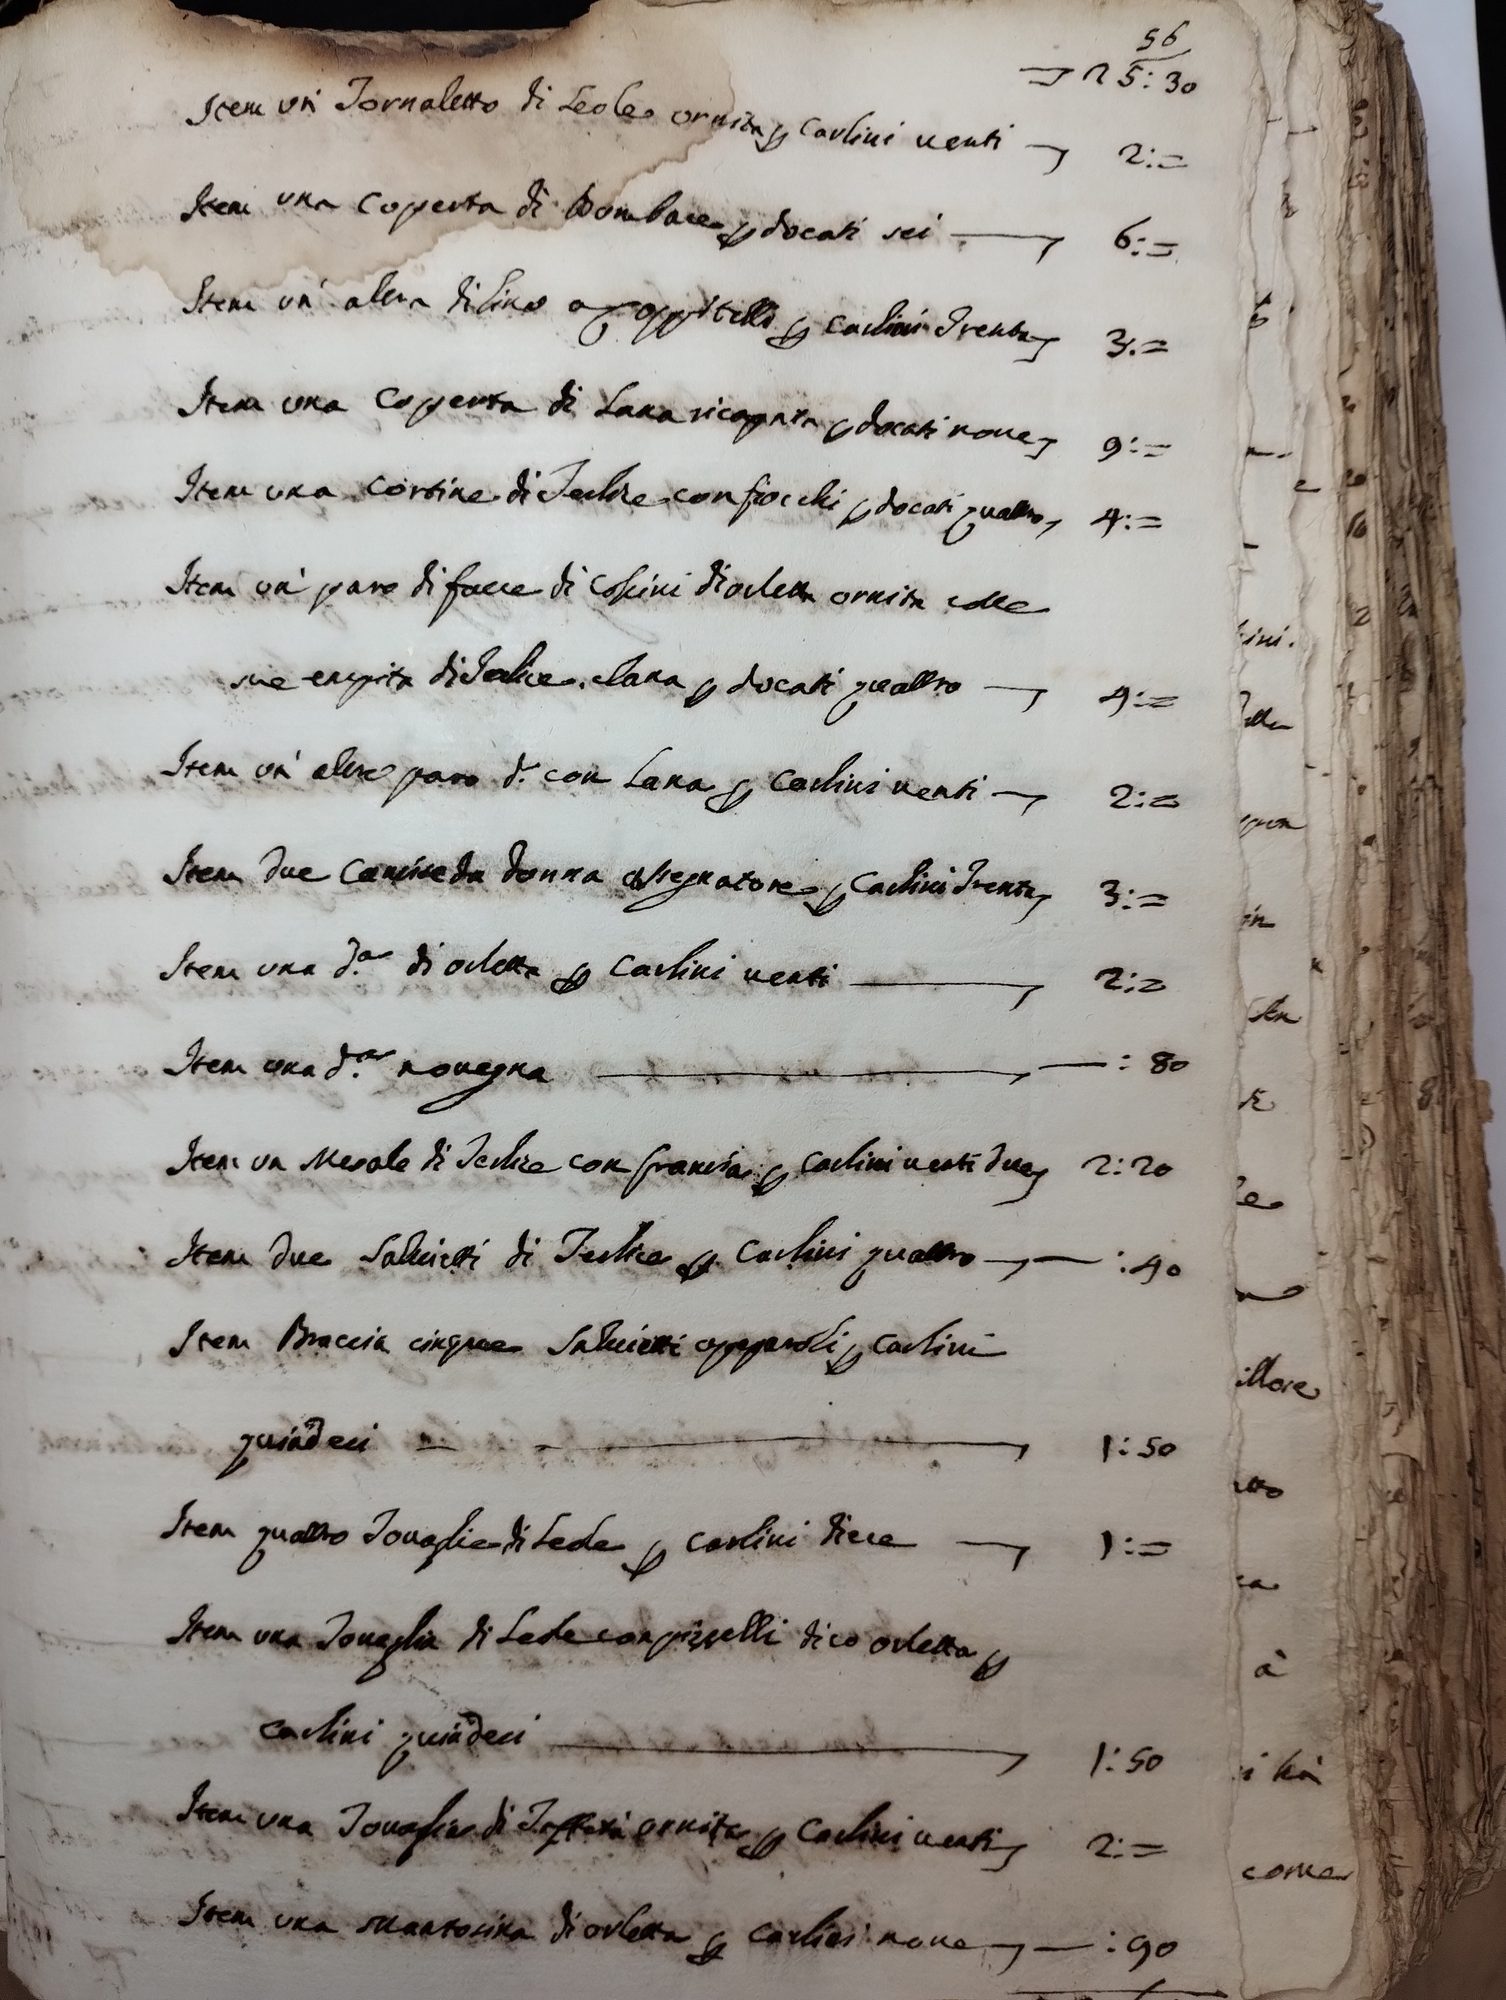 56
25:30
Item un' Tornaletto di Leole ornita p carlini venti 2:=
Item una coperta di Bombace p docati sei 6:=
Item un' altra di lino a p carlini Trenta 3:=
Item una Coperta di Lana p docati nove 9:=
Item una cortina di Terlice con fiocchi p docati quattro 4:=
Item un' paro di facce di coscini di orletta ornita colle
sue empita di Terlice, e lana p docati quattro 4:=
Item un' altro paro d.º con Lana p Carlini venti 2:=
Item due Camise da donna p Carlini Trenta 3:=
Item una d.ª di orletta p Carlini venti 2:=
Item una d.ª novegna :80
Item un Mesale di Terlice con francia p carlini venti due 2:20
Item due Salvietti di Terlice p Carlini quattro :40
Item Braccia cinque Salvietti apparoli p Carlini
quindeci 1:50
Item quattro Tovaglie di Lede p carlini diece 1:=
Item una Tovaglia di Lede con pizzelli dico orletta p
carlini quindeci 1:50
Item una Tovaglia di Taffetà ornita p Carlini venti 2:=
Item una Mantosina di orletta p carlini nove :90